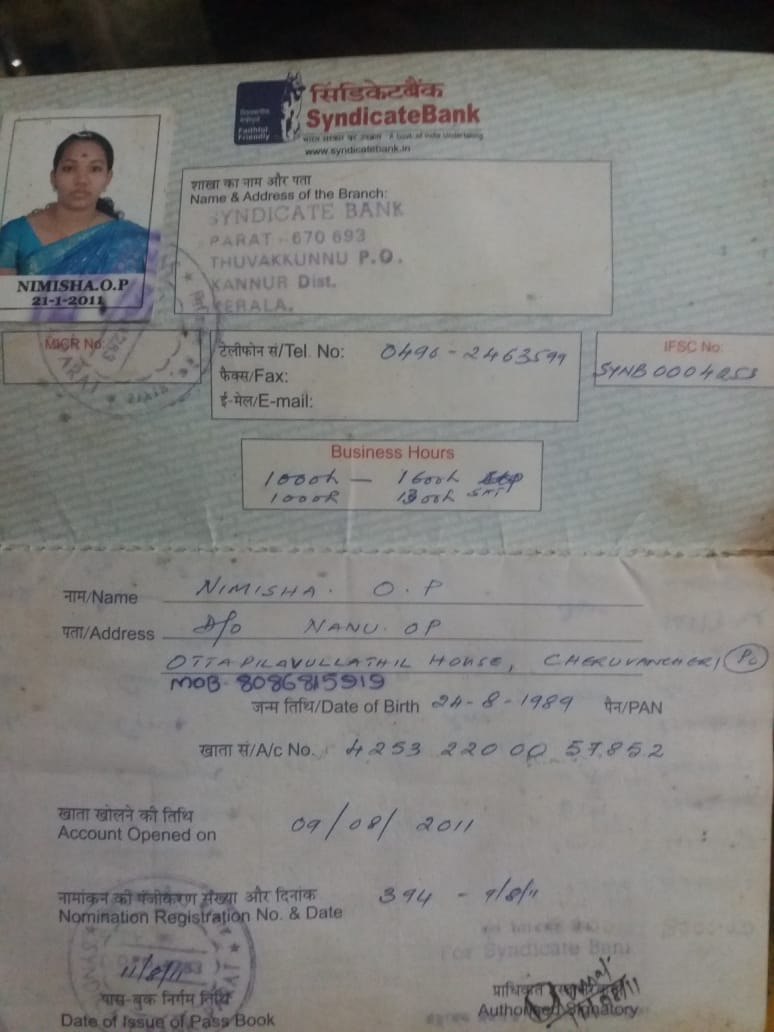 सिंडिकेटबैंक
SyndicateBank
Faithful Friendly
www.syndicatebank.in
शाखा का नाम और पता
Name & Address of the Branch:
SYNDICATE BANK
PARAT - 670 693
THUVAKKUNNU P.O.
KANNUR Dist.
KERALA.
NIMISHA.O.P
21-1-2011
MICR No:
टेलीफोन सं/Tel. No: 0496-2463599
फैक्स/Fax:
ई-मेल/E-mail:
IFSC No:
SYNB0004253
Business Hours
1000h - 1600h
1000h 1300h SAT
नाम/Name NIMISHA. O.P
पता/Address D/o NANU.OP
OTTAPILAVULLATHIL HOUSE, CHERUVANCHERI PO
MOB-8086815919
जन्म तिथि/Date of Birth 24-8-1989 पैन/PAN
खाता सं/A/c No. 4253 220 00 57852
खाता खोलने की तिथि
Account Opened on 09/08/2011
नामांकन की पंजीकरण संख्या और दिनांक 394 - 9/8/11
Nomination Registration No. & Date
For Syndicate Bank
11/8/11
पास-बुक निर्गम तिथि
Date of Issue of Pass Book
Authorised Signatory